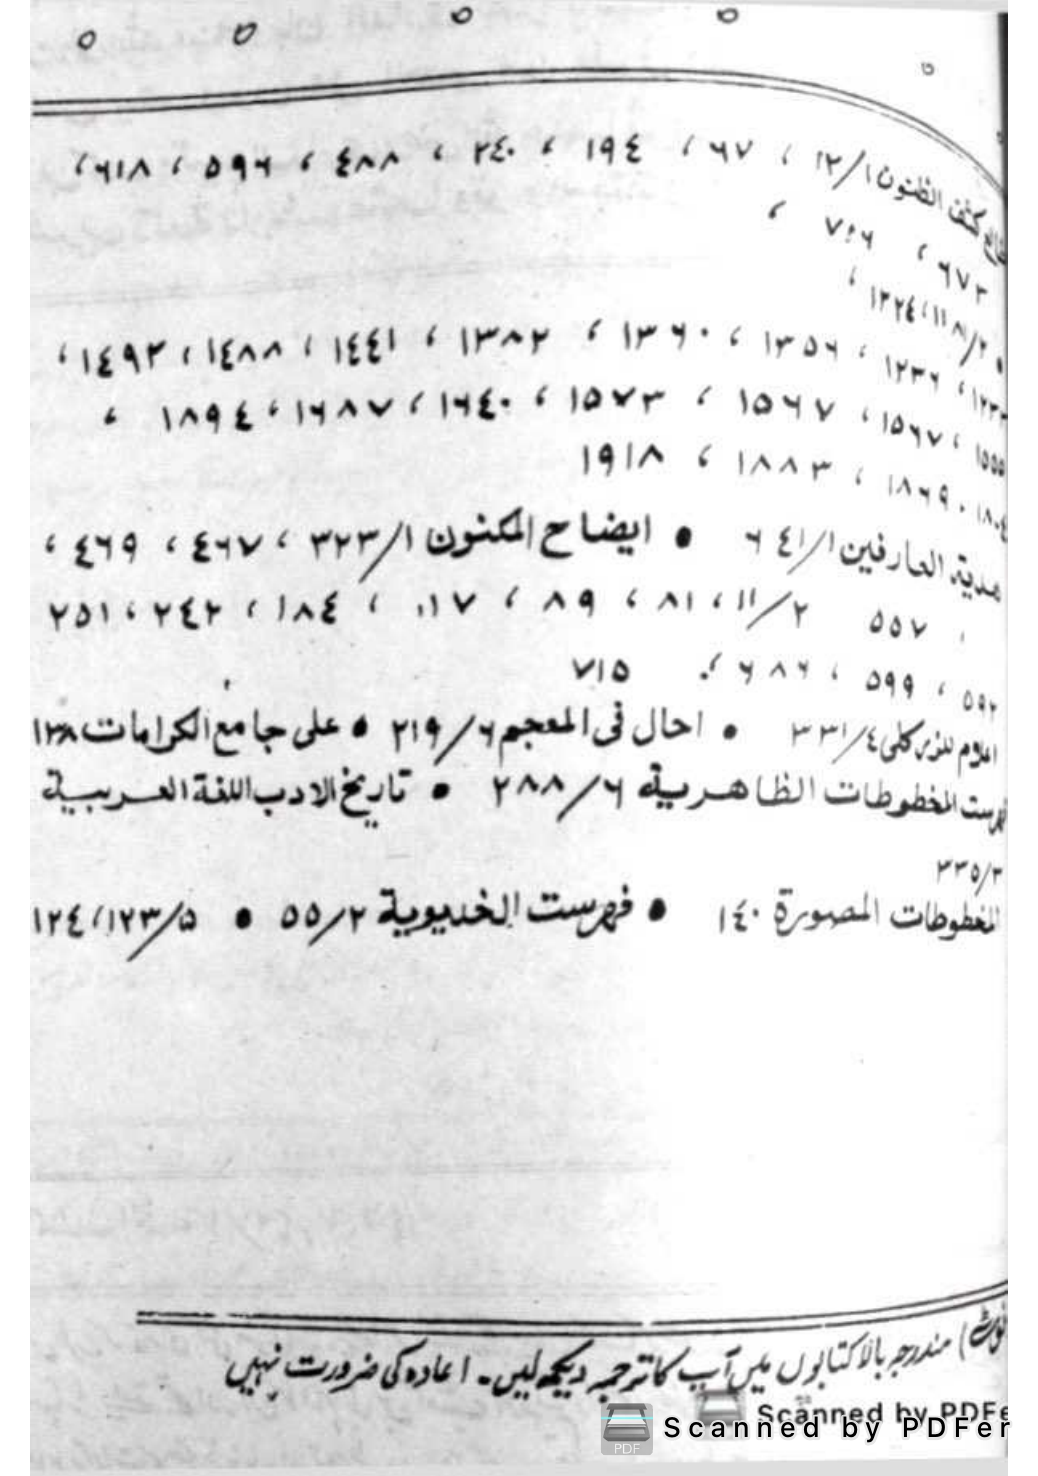 كشف الظنون ١/١٢ ، ٦٧ ، ١٩٤ ، ٢٤٠ ، ٤٨٨ ، ٥٩٦ ، ٦١٨ ،
٦٧٣ ،
١٢٣٦ ، ١٣٥٦ ، ١٣٦٠ ، ١٣٨٢ ، ١٤٤١ ، ١٤٨٨ ، ١٤٩٢ ،
١٥٥٥ ، ١٥٦٧ ، ١٥٦٧ ، ١٥٧٣ ، ١٦٤٠ ، ١٦٨٧ ، ١٨٩٤ ،
١٨٠٤ . ١٨٦٩ ، ١٨٨٣ ، ١٩١٨
هدية العارفين ١/٦٤١ ● ايضاح المكنون ١/٣٢٣ ، ٤٦٧ ، ٤٦٩ ،
٥٥٧ ٢/١١ ، ٨١ ، ٨٩ ، ١٨٤ ، ٢٤٢ ، ٢٥١
٥٩٢ ، ٥٩٩ ، ٦٨٦ ، ٧١٥
اعلام للزركلى ٤/٣٣١ ● احال فى المعجم ٦/٢١٩ ● على جامع الكرامات ١٣٨
فهرست المخطوطات الظاهرية ٦/٢٨٨ ● تاريخ الادب اللغة العربية
٣/٣٣٥
المخطوطات المصورة ١٤٠ ● فهرست الخديوية ٢/٥٥ ● ٥/١٢٣ ، ١٢٤
نوٹ) مندرجہ بالا کتابوں میں آپ کا ترجمہ دیکھ لیں۔ اعادہ کی ضرورت نہیں
Scanned by PDFer
Scanned by PDFer
PDF